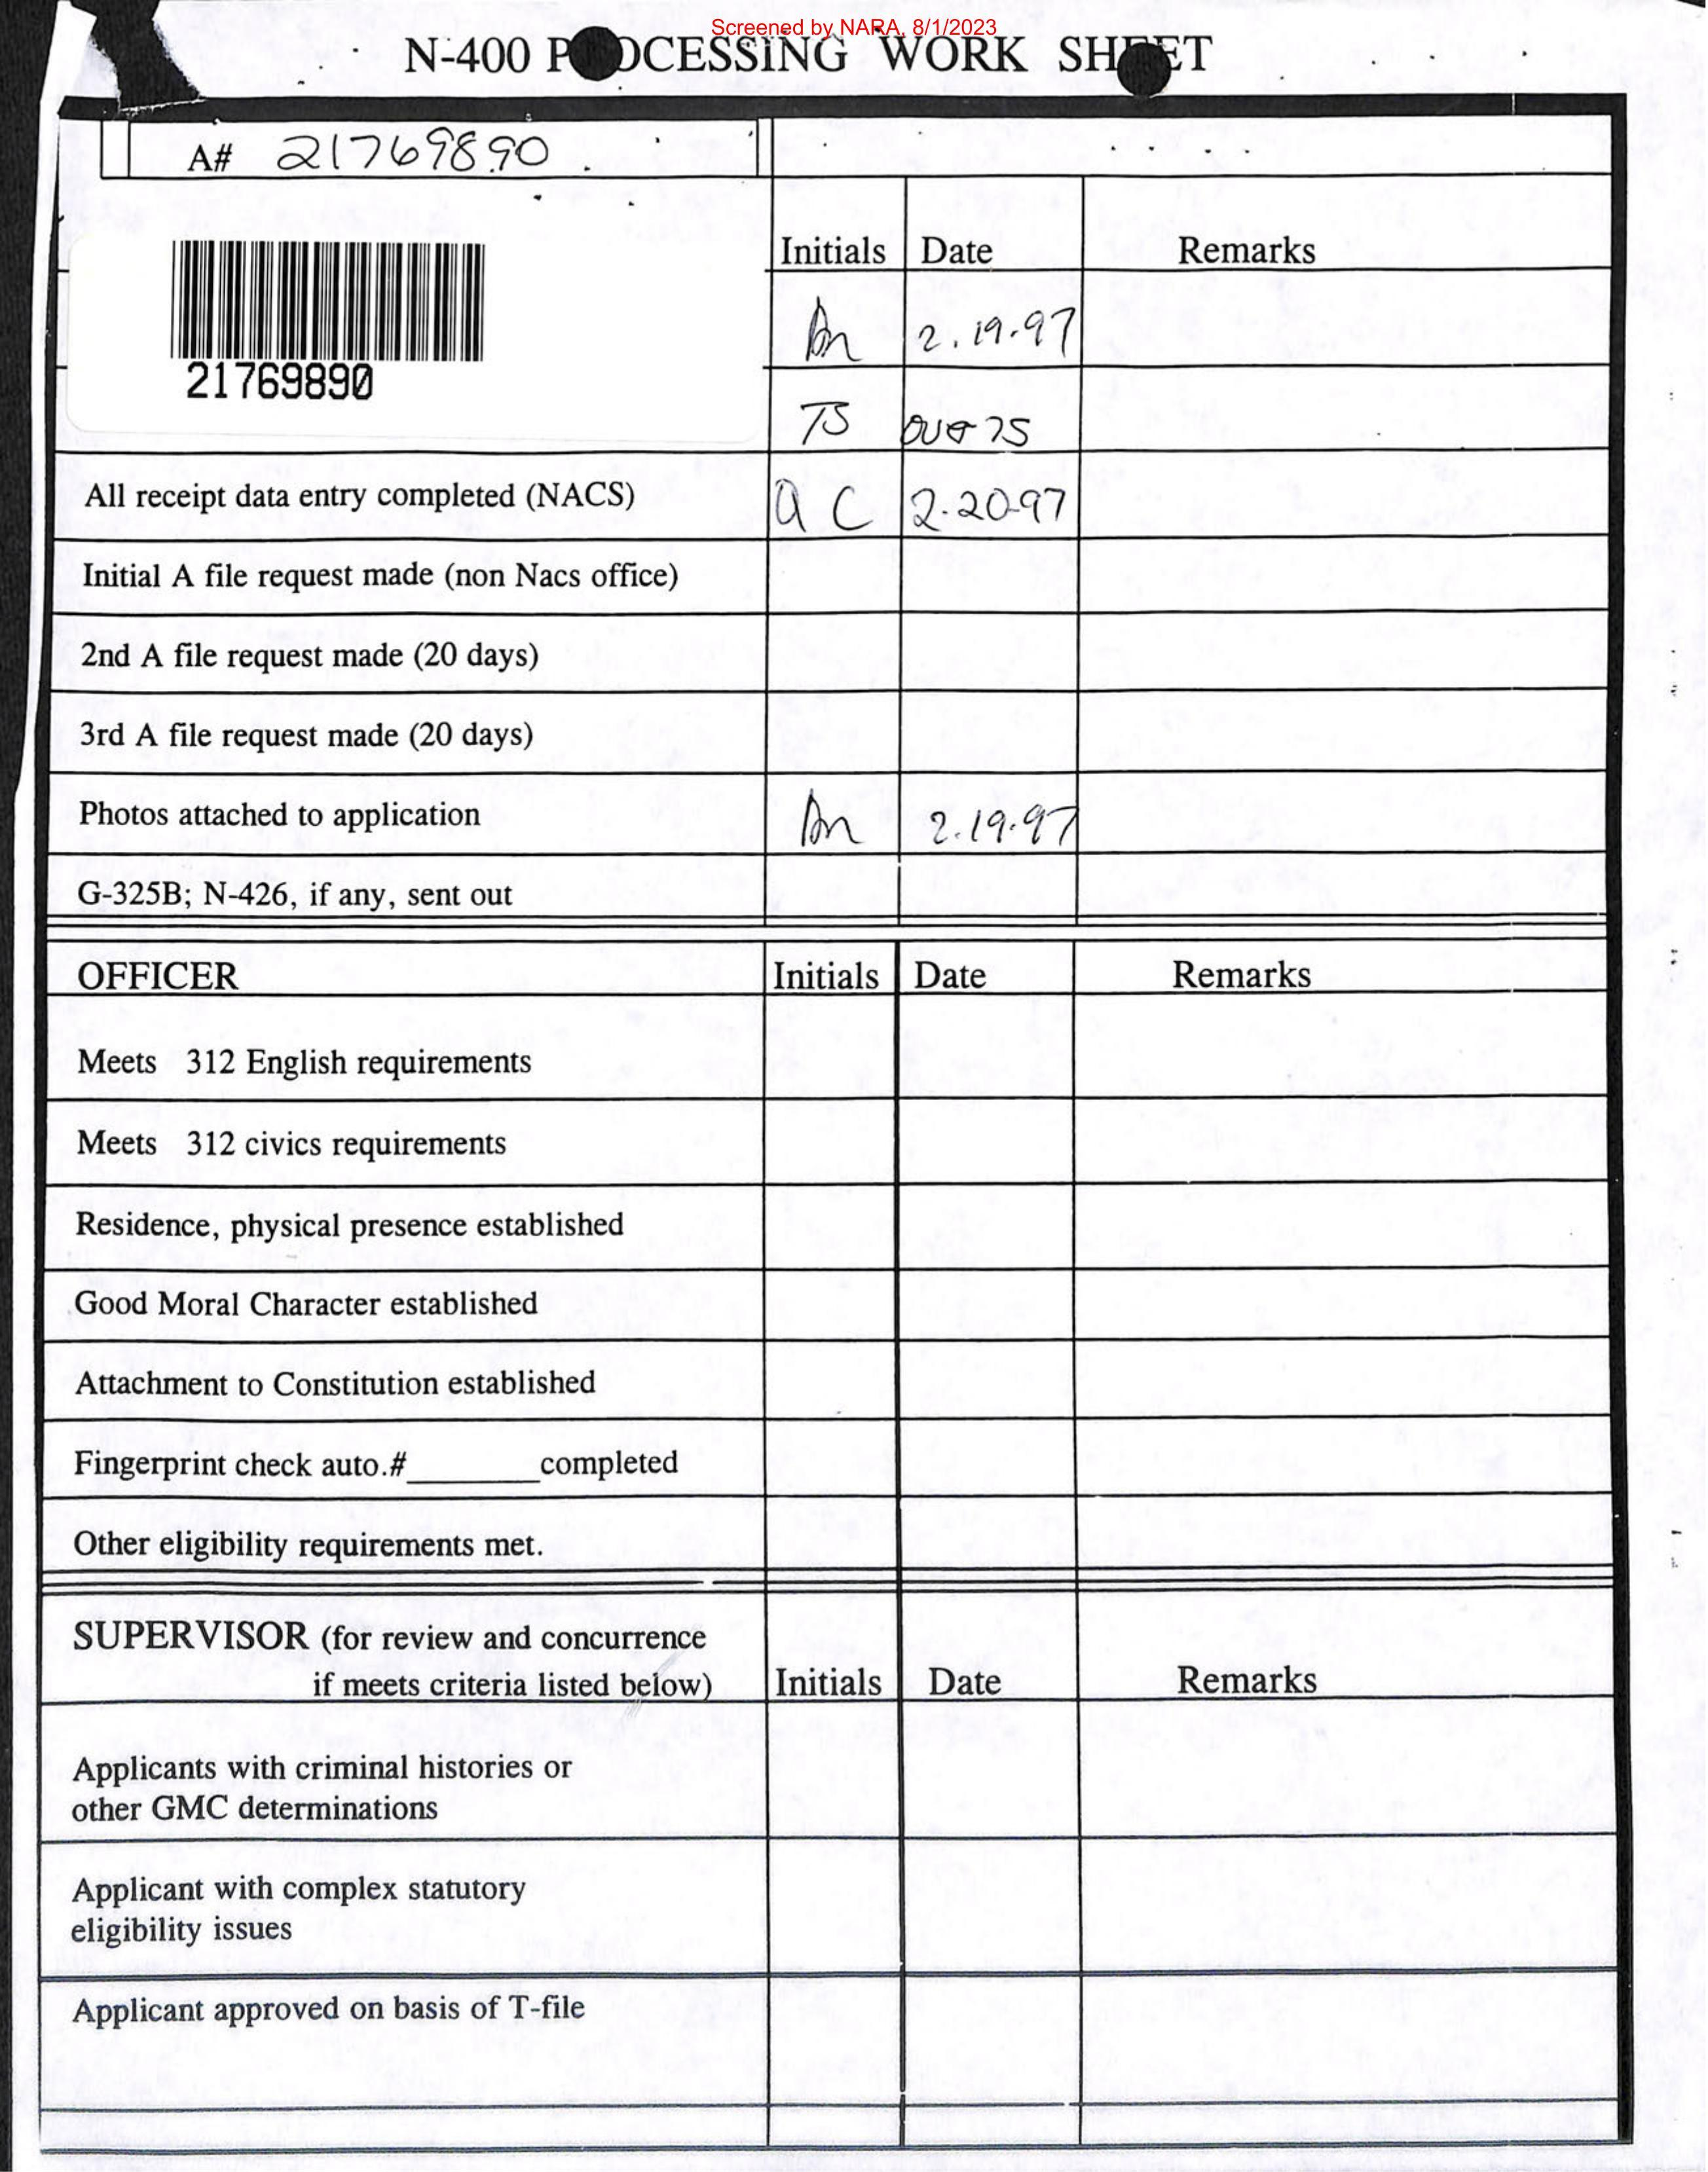 Screened by NARA, 8/1/2023
N-400 P OCESSING WORK SH ET
A# 21769890
Initials Date Remarks
21769890
2.19.97
TS over 75
All receipt data entry completed (NACS) a C 2-20-97
Initial A file request made (non Nacs office)
2nd A file request made (20 days)
3rd A file request made (20 days)
Photos attached to application 2.19.97
G-325B; N-426, if any, sent out
OFFICER Initials Date Remarks
Meets 312 English requirements
Meets 312 civics requirements
Residence, physical presence established
Good Moral Character established
Attachment to Constitution established
Fingerprint check auto.#________completed
Other eligibility requirements met.
SUPERVISOR (for review and concurrence
if meets criteria listed below) Initials Date Remarks
Applicants with criminal histories or
other GMC determinations
Applicant with complex statutory
eligibility issues
Applicant approved on basis of T-file